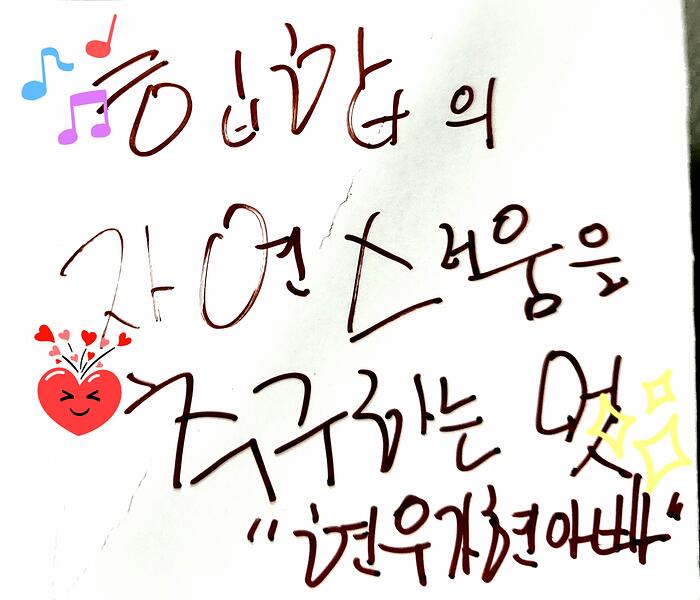 의
자연스러움을
추구하는 멋
"현우가현아빠"